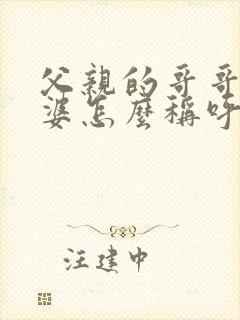 父親的哥哥
婆怎麼稱呼
汪建中